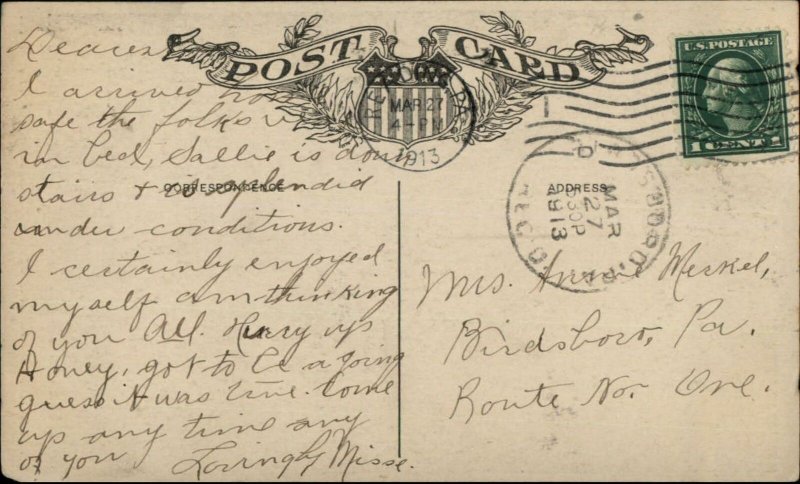 POST CARD
U.S. POSTAGE
1 CENT
MAR 27
4 PM
1913
BIRDSBORO, PA.
REC'D.
MAR
27
530P
1913
CORRESPONDENCE
ADDRESS
Dearest
I arrived home
safe the folks
in bed, Sallie is down
stairs & is splendid
under conditions.
I certainly enjoyed
myself am thinking
of you All. Hurry up
Honey, got to be a going
guess it was time. Come
up any time any
of you Lovingly Misse.
Mrs. Annie Merkel,
Birdsboro, Pa.
Route No. One.